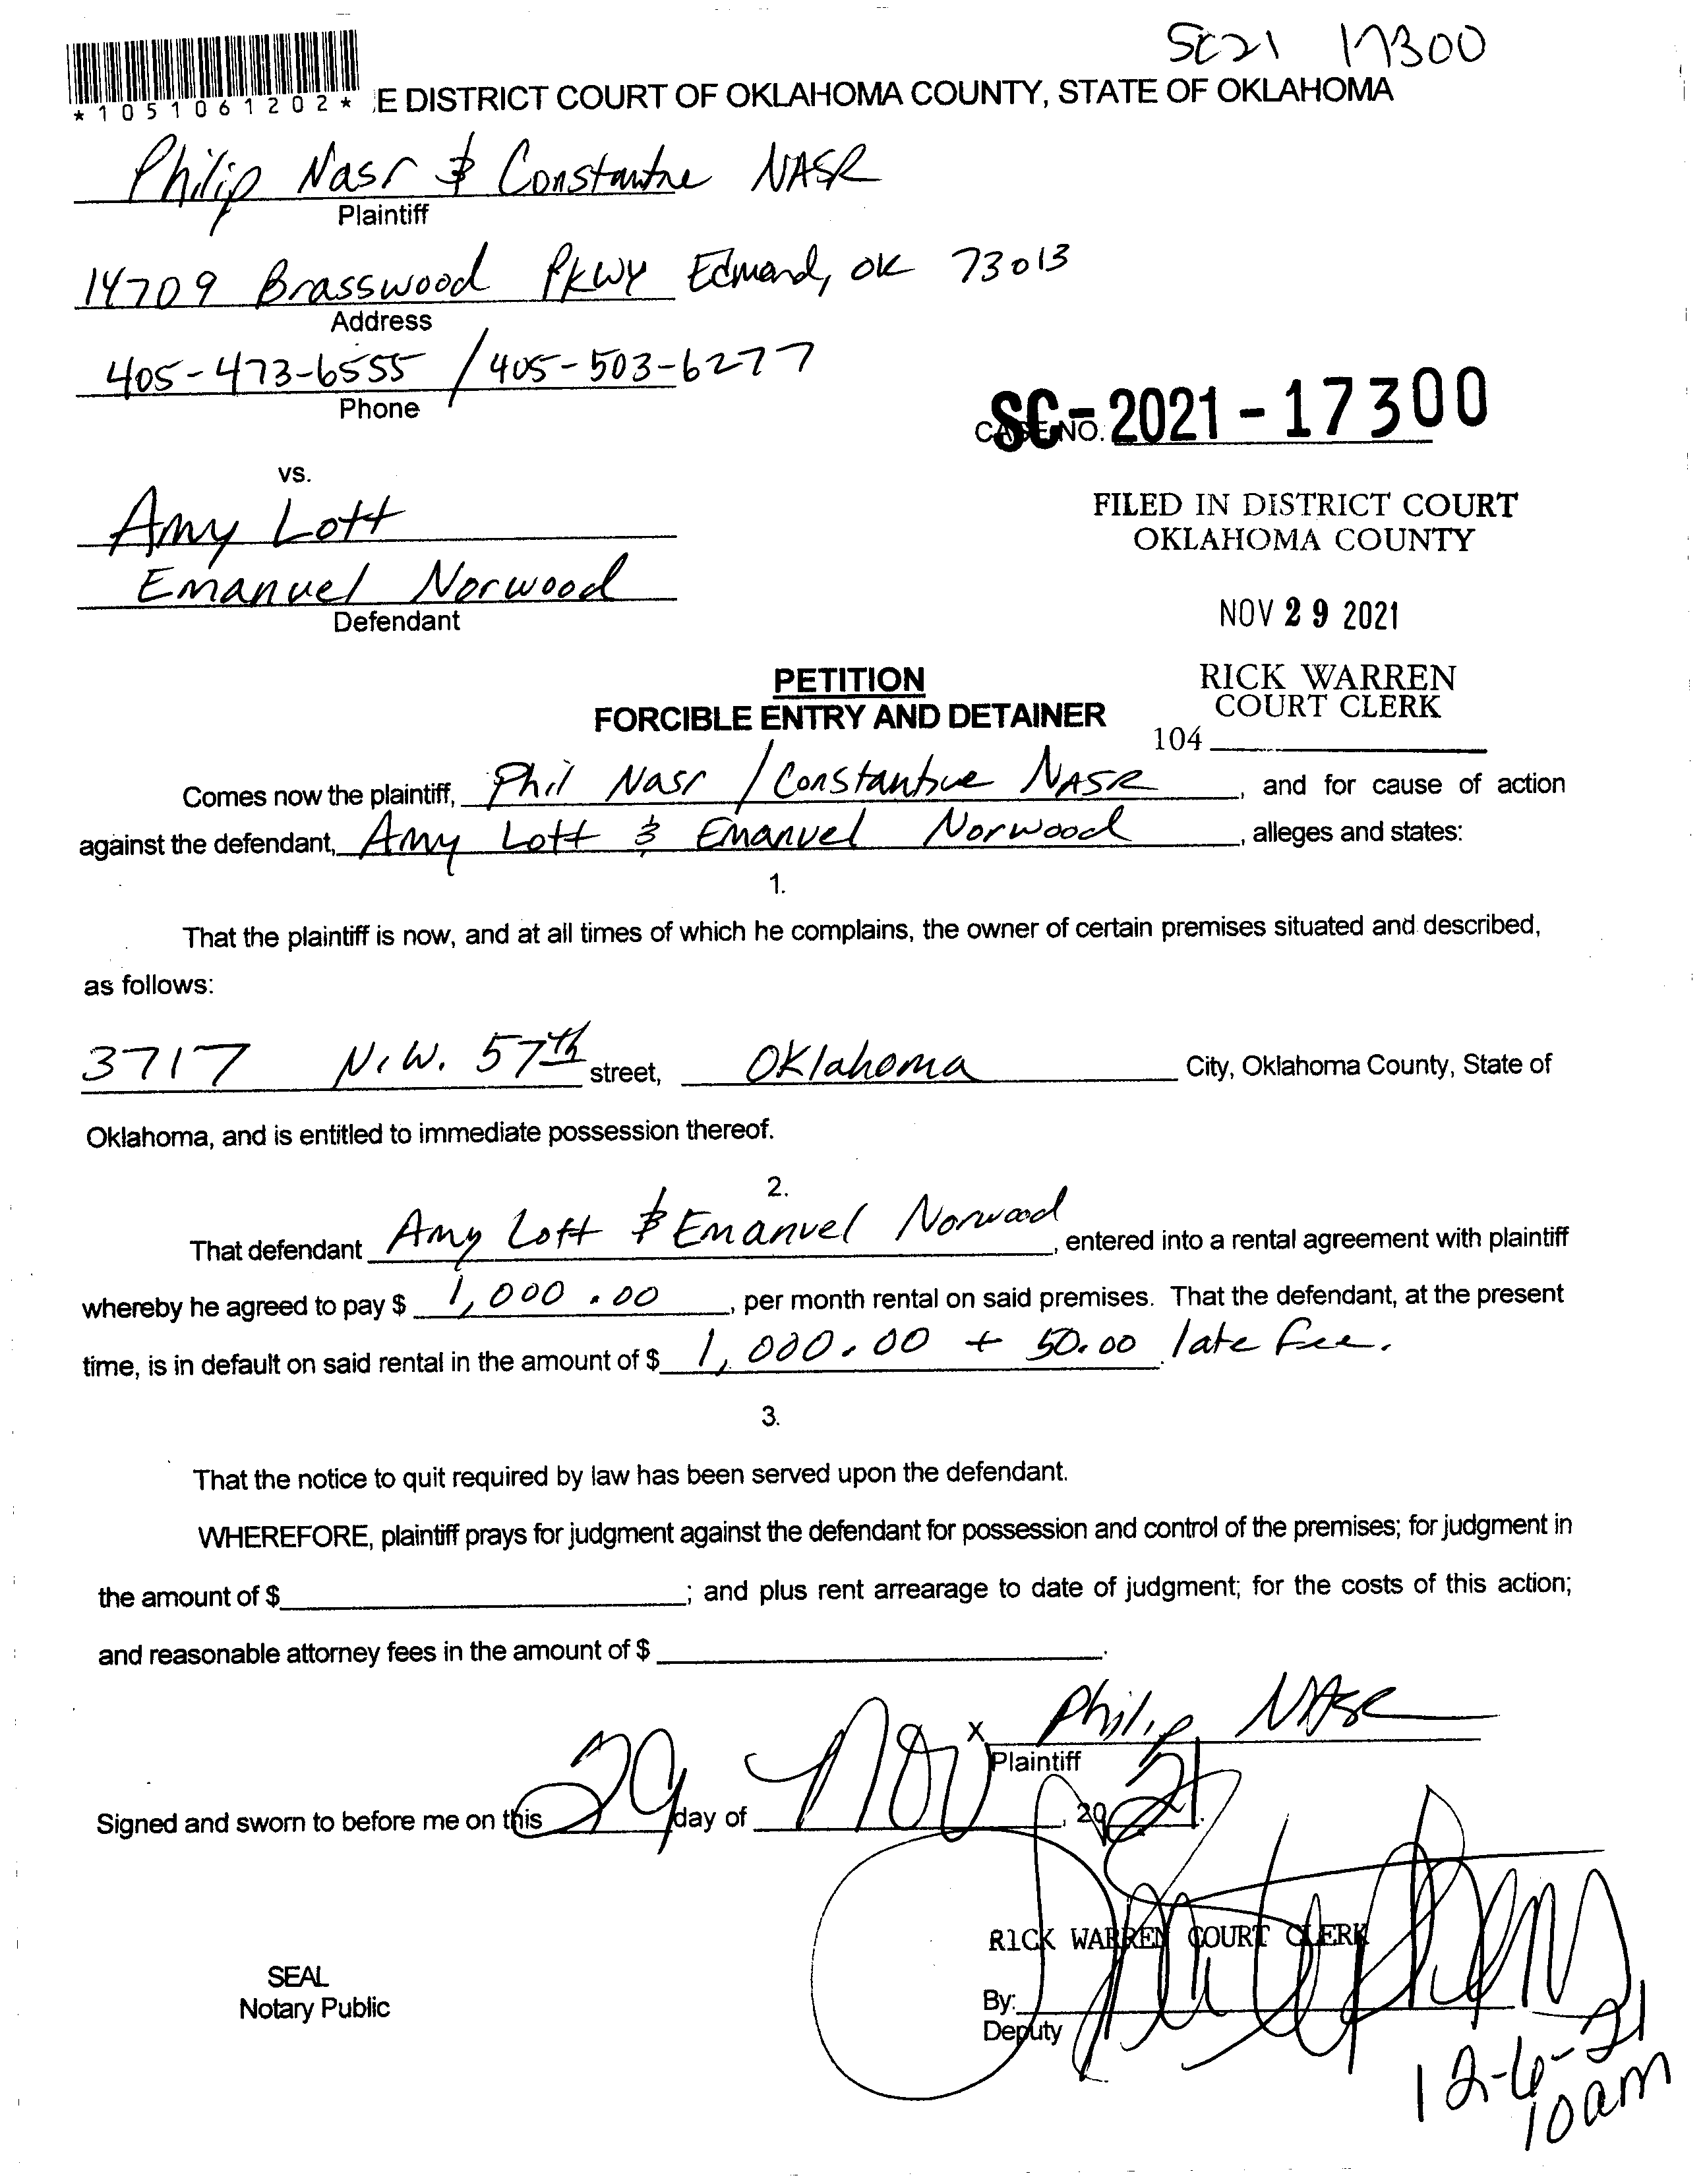 SC21 17300
*1051061202* E DISTRICT COURT OF OKLAHOMA COUNTY, STATE OF OKLAHOMA
Philip Nasr & Constantine NASR
Plaintiff
14709 Brasswood Pkwy Edmond, OK 73013
Address
405-473-6555 / 405-503-6277
Phone
CASE NO. SC-2021-17300
vs.
Amy Lott
Emanuel Norwood
Defendant
FILED IN DISTRICT COURT
OKLAHOMA COUNTY
NOV 29 2021
RICK WARREN
COURT CLERK
104
PETITION
FORCIBLE ENTRY AND DETAINER
Comes now the plaintiff, Phil Nasr / Constantine NASR, and for cause of action
against the defendant, Amy Lott & Emanuel Norwood, alleges and states:
1.
That the plaintiff is now, and at all times of which he complains, the owner of certain premises situated and described,
as follows:
3717 N.W. 57th street, Oklahoma City, Oklahoma County, State of
Oklahoma, and is entitled to immediate possession thereof.
2.
That defendant Amy Lott & Emanuel Norwood, entered into a rental agreement with plaintiff
whereby he agreed to pay $ 1,000.00, per month rental on said premises. That the defendant, at the present
time, is in default on said rental in the amount of $ 1,000.00 + 50.00 late fee.
3.
That the notice to quit required by law has been served upon the defendant.
WHEREFORE, plaintiff prays for judgment against the defendant for possession and control of the premises; for judgment in
the amount of $ ; and plus rent arrearage to date of judgment; for the costs of this action;
and reasonable attorney fees in the amount of $ .
x Philip NASR
Plaintiff
Signed and sworn to before me on this 29 day of Nov, 2021.
RICK WARREN COURT CLERK
SEAL
Notary Public
By:
Deputy
12-6-21
10am